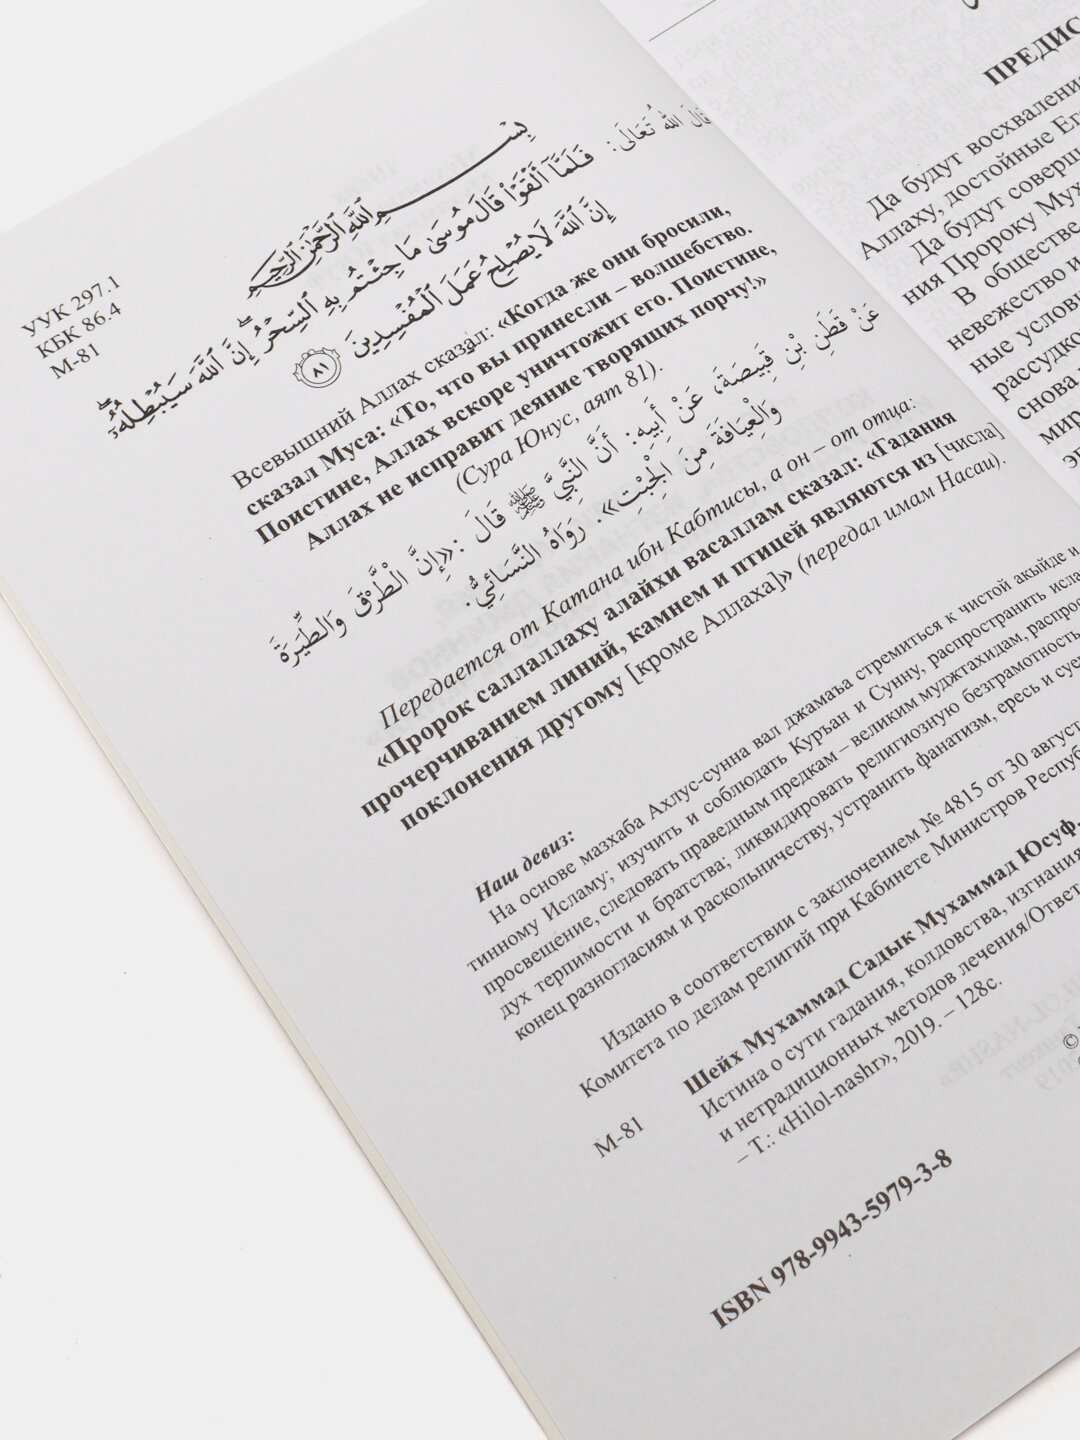 УУК 297.1
КБК 86.4
М-81
بِسْمِ ٱللَّهِ ٱلرَّحْمَٰنِ ٱلرَّحِيمِ
قَالَ اللهُ تَعَالَى: فَلَمَّآ أَلْقَوْا۟ قَالَ مُوسَىٰ مَا جِئْتُم بِهِ ٱلسِّحْرُ إِنَّ ٱللَّهَ سَيُبْطِلُهُۥٓ
إِنَّ ٱللَّهَ لَا يُصْلِحُ عَمَلَ ٱلْمُفْسِدِينَ ٨١
Всевышний Аллах сказал: «Когда же они бросили,
сказал Муса: «То, что вы принесли – волшебство.
Поистине, Аллах вскоре уничтожит его. Поистине,
Аллах не исправит деяние творящих порчу!»
(Сура Юнус, аят 81).
عَنْ قَطَنِ بْنِ قَبِيصَةَ، عَنْ أَبِيهِ: أَنَّ النَّبِيَّ ﷺ قَالَ: «إِنَّ الْطَّرْقَ وَالطِّيَرَةَ
وَالْعِيَافَةَ مِنَ الْجِبْتِ». رَوَاهُ النَّسَائِيُّ.
Передается от Катана ибн Кабтисы, а он – от отца:
«Пророк саллаллаху алайхи васаллам сказал: «Гадания
прочерчиванием линий, камнем и птицей являются из [числа]
поклонения другому [кроме Аллаха]» (передал имам Насаи).
Наш девиз:
На основе мазхаба Ахлус-сунна вал джамаъа стремиться к чистой акыйде и
тинному Исламу; изучить и соблюдать Куръан и Сунну, распространить исла
просвещение, следовать праведным предкам – великим муджтахидам, распрос
дух терпимости и братства; ликвидировать религиозную безграмотность,
конец разногласиям и раскольничеству, устранить фанатизм, ересь и суе
Издано в соответствии с заключением № 4815 от 30 август
Комитета по делам религий при Кабинете Министров Респуб
Шейх Мухаммад Садык Мухаммад Юсуф.
М-81
Истина о сути гадания, колдовства, изгнания
и нетрадиционных методов лечения/Ответ
– Т.: «Hilol-nashr», 2019. – 128с.
©
ISBN 978-9943-5979-3-8
ПРЕДИС
Да будут восхваления
Аллаху, достойные Ег
Да будут соверш
ния Пророку Мух
В обществе
невежество и
ные услов
рассудко
снова
мир
эп